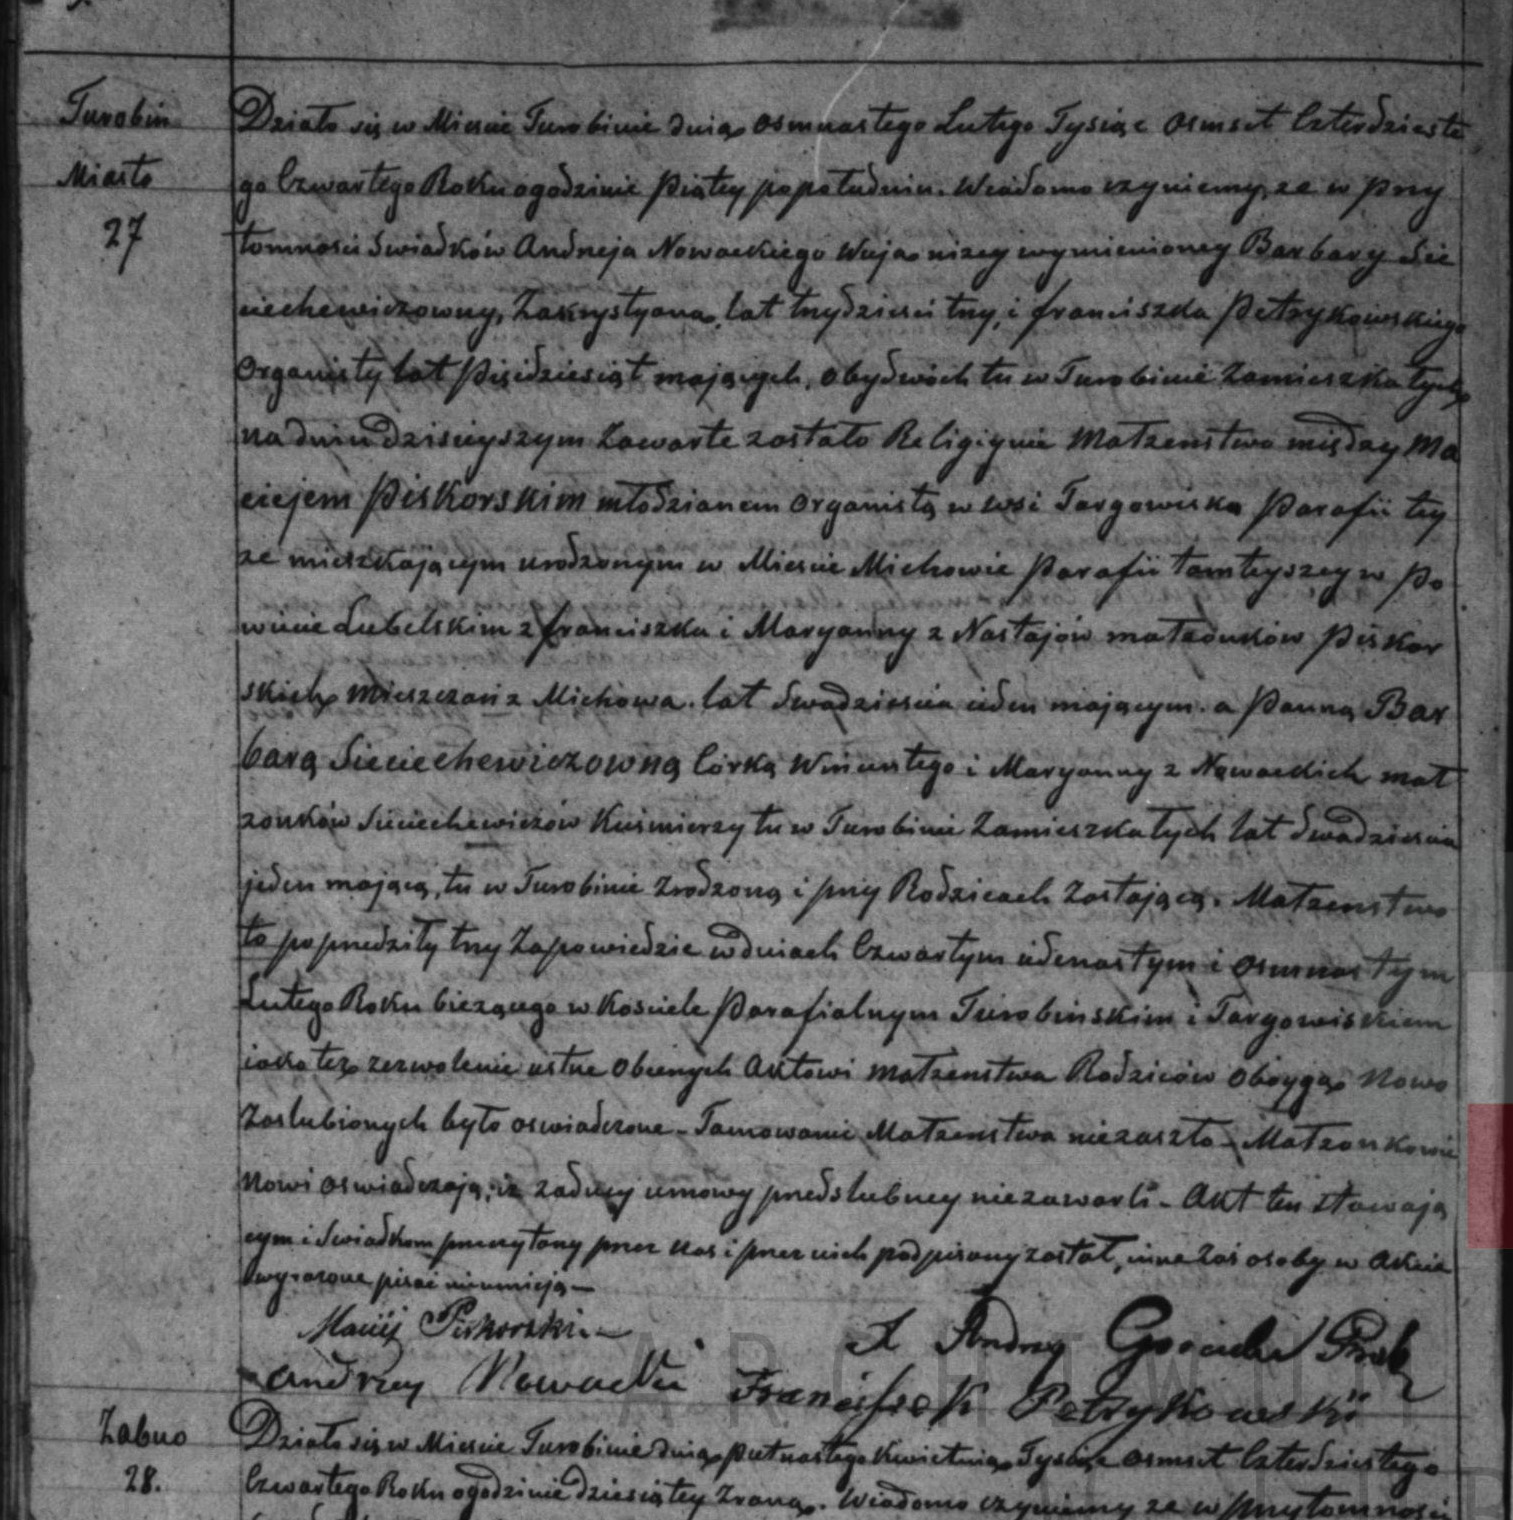 Turobin
Miasto
27
Działo się w Mieście Turobinie dnia osmnastego Lutego Tysiąc osmset Czterdzieste
go Czwartego Roku o godzinie Piątey popołudniu. Wiadomo czyniemy, że w przy
tomności Swiadków Andrzeja Nowackiego Wuja niżey wymienioney Barbary Sie
ciechewiczowny, Zakrystyana, lat trzydzieści trzy, i Franciszka Petrykowskiego
Organisty lat Pięćdziesiąt mających, obydwóch tu w Turobinie Zamieszkałych,
na dniu dzisieyszym Zawarte zostało Religiynie Małżeństwo między Ma
ciejem Piskorskim młodzianem Organistą w wsi Targowiska Parafii tey
że mieszkającym urodzonym w Mieście Michowie Parafii tamteyszey w Po
wiecie Lubelskim z Franciszka i Maryanny z Nastajów małżonków Piskor
skich, mieszczan z Michowa. lat dwadzieścia ieden mającym. a Panną Bar
barą Sieciechewiczowną Córką Wincentego i Maryanny z Nowackich mał
żonków Sieciechewiczów Kuśmierzy tu w Turobinie Zamieszkałych lat dwadzieścia
jeden mającą, tu w Turobinie Zrodzoną i przy Rodzicach Zostającą. Małżeństwo
to poprzedziły trzy Zapowiedzie w dniach Czwartym iedenastym i osmnastym
Lutego Roku bieżącego w Kościele Parafialnym Turobinskim i Targowiskiem
iako też zezwolenie ustne obecnych Aktowi małżeństwa Rodziców oboyga Nowo
Zaślubionych było oswiadczone – Tamowanie Małżeństwa niezaszło – Małżonkowie
Nowi oswiadczają, iż żadney umowy przedślubney niezawarli – Akt ten stawają
cym i Swiadkom przeczytany przez nas i przez nich podpisany został, inne zaś osoby w Akcie
wyrażone pisać nieumieją –
Maciej Piskorski –
X Andrzy Prob
Andrzey Nowacki
Franciszek Petrykowski
ARCHIWUM
Żabno
28.
Działo się w Mieście Turobinie dnia piętnastego Kwietnia Tysiąc osmset Czterdziestego
Czwartego Roku o godzinie dziesiątey Zrana. Wiadomo czyniemy że w przytomności